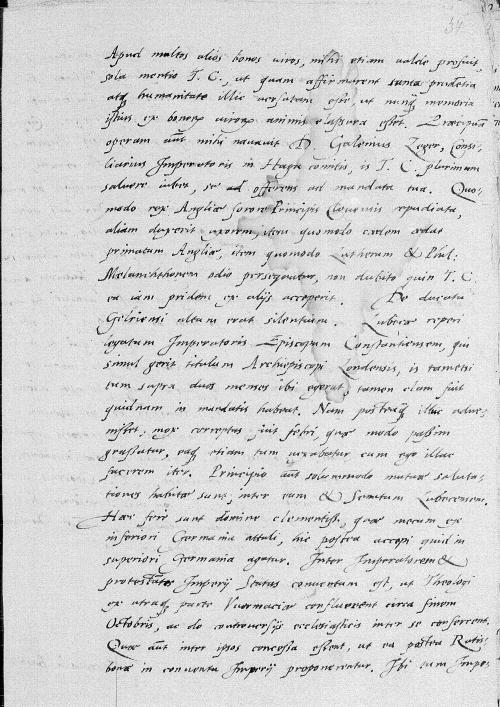 34
Apud multos alios bonos viros, mihi etiam valde profuit
sola mentio T. C., ut quam affirmarent summa prudentia
atq humanitate illic versatam esse, ut nunq memoria
istius ex bonorum virorum animis elapsura esset. Præcipuam
operam aut mihi navavit D. Galenius Zeger, Consi-
liarius Imperatoris in Haga comitis, is T. C. plurimam
salutem iubet, se ad offerens ad mandata tua. Quo-
modo rex Angliæ sorore Principis Clivensis repudiata,
aliam duxerit uxorem, item quomodo cædem ædat
primatum Angliæ, item quomodo Lutherum & Phil:
Melanchthonem odio persequatur, non dubito quin T. C.
ea iam pridem ex alijs acceperit. De ducatu
Gelriensi altum erat silentium. Lubecæ reperi
legatum Imperatoris Episcopum Constantiensem, qui
simul gerit titulum Archiepiscopi Londensis, is tametsi
eum supra duos menses ibi egerat, tamen clam fuit
quidnam in mandatis habeat. Nam postquam illuc adve-
nisset, mox correptus fuit febri, quæ modo passim
grassatur, eaq etiam tum vexabatur cum ego illac
facerem iter. Principio aut solummodo mutuæ saluta-
tiones habitæ sunt, inter eum & Senatum Lubecensem.
Hæc fere sunt domine clementiss, quæ mecum ex
inferiori Germania attuli, hic postea accepi quid in
superiori Germania agatur. Inter Imperatorem &
protestantes Imperij Status conventum est, ut Theologi
ex utraq parte Vuormaciæ confluerent circa finem
Octobris, ac de controversijs ecclesiasticis inter se conferrent.
Quæ aut inter ipsos concessa essent, ut ea postea Ratis-
bonæ in conventu Imperij proponerentur. Ibi cum Impe-